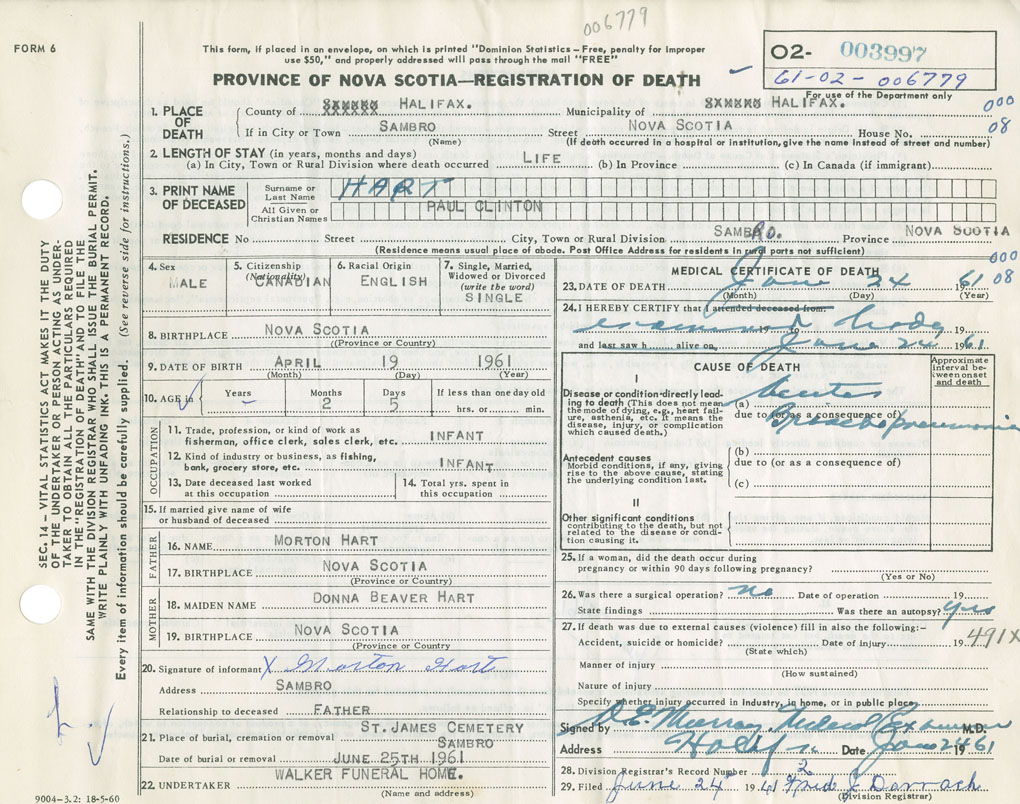 006779
FORM 6
This form, if placed in an envelope, on which is printed "Dominion Statistics – Free, penalty for improper
use $50," and properly addressed will pass through the mail "FREE"
O2- 003997
61-02-006779
For use of the Department only
PROVINCE OF NOVA SCOTIA—REGISTRATION OF DEATH
1. PLACE OF DEATH
County of HALIFAX. Municipality of HALIFAX.
000
08
If in City or Town SAMBRO Street NOVA SCOTIA House No.
(Name) (If death occurred in a hospital or institution, give name instead of street and number)
2. LENGTH OF STAY (in years, months and days)
(a) In City, Town or Rural Division where death occurred LIFE (b) In Province (c) In Canada (if immigrant)
3. PRINT NAME OF DECEASED
Surname or Last Name HART
All Given or Christian Names PAUL CLINTON
RESIDENCE No Street City, Town or Rural Division SAMBRO. Province NOVA SCOTIA
(Residence means usual place of abode. Post Office Address for residents in rural parts not sufficient)
4. Sex MALE
5. Citizenship (Nationality) CANADIAN
6. Racial Origin ENGLISH
7. Single, Married, Widowed or Divorced (write the word) SINGLE
8. BIRTHPLACE NOVA SCOTIA
(Province or Country)
9. DATE OF BIRTH APRIL 19 1961
(Month) (Day) (Year)
10. AGE in Years Months 2 Days 5 If less than one day old hrs. or min.
OCCUPATION
11. Trade, profession, or kind of work as
fisherman, office clerk, sales clerk, etc. INFANT
12. Kind of industry or business, as fishing,
bank, grocery store, etc. INFANT
13. Date deceased last worked at this occupation
14. Total yrs. spent in this occupation
15. If married give name of wife
or husband of deceased
FATHER
16. NAME MORTON HART
17. BIRTHPLACE NOVA SCOTIA
(Province or Country)
MOTHER
18. MAIDEN NAME DONNA BEAVER HART
19. BIRTHPLACE NOVA SCOTIA
(Province or Country
20. Signature of informant X Morton Hart
Address SAMBRO
Relationship to deceased FATHER
ST. JAMES CEMETERY
21. Place of burial, cremation or removal SAMBRO
Date of burial or removal JUNE 25TH 1961
WALKER FUNERAL HOME.
22. UNDERTAKER
(Name and address)
MEDICAL CERTIFICATE OF DEATH
000
08
23. DATE OF DEATH June 24 1961
(Month) (Day) (Year)
24. I HEREBY CERTIFY that I attended deceased from:
examined body 19
and last saw h alive on June 24 1961
CAUSE OF DEATH
Approximate interval between onset and death
I
Disease or condition directly leading to death (This does not mean the mode of dying, e.g., heart failure, asthenia, etc. It means the disease, injury, or complication which caused death.)
(a) Acute
due to (or as a consequence of)
Bronchopneumonia
Antecedent causes
Morbid conditions, if any, giving rise to the above cause, stating the underlying condition last.
(b)
due to (or as a consequence of)
(c)
II
Other significant conditions
contributing to the death, but not related to the disease or condition causing it.
25. If a woman, did the death occur during
pregnancy or within 90 days following pregnancy?
(Yes or No)
26. Was there a surgical operation? no Date of operation 19
State findings Was there an autopsy? yes
27. If death was due to external causes (violence) fill in also the following:–
491X
Accident, suicide or homicide? Date of injury 19
(State which)
Manner of injury
(How sustained)
Nature of injury
Specify whether injury occurred in industry, in home, or in public place
Signed by Murray, Medical Examiner M.D.
Address Halifax Date June 24 1961
28. Division Registrar's Record Number 2
29. Filed June 24 1961 Fred J Darrach
(Division Registrar)
SEC. 14 – VITAL STATISTICS ACT MAKES IT THE DUTY
OF THE UNDERTAKER OR PERSON ACTING AS UNDER-
TAKER TO OBTAIN ALL THE PARTICULARS REQUIRED
IN THE "REGISTRATION OF DEATH" AND TO FILE THE
SAME WITH THE DIVISION REGISTRAR WHO SHALL ISSUE THE BURIAL PERMIT.
WRITE PLAINLY WITH UNFADING INK. THIS IS A PERMANENT RECORD.
Every item of information should be carefully supplied. (See reverse side for instructions.)
9004-3.2: 18-5-60